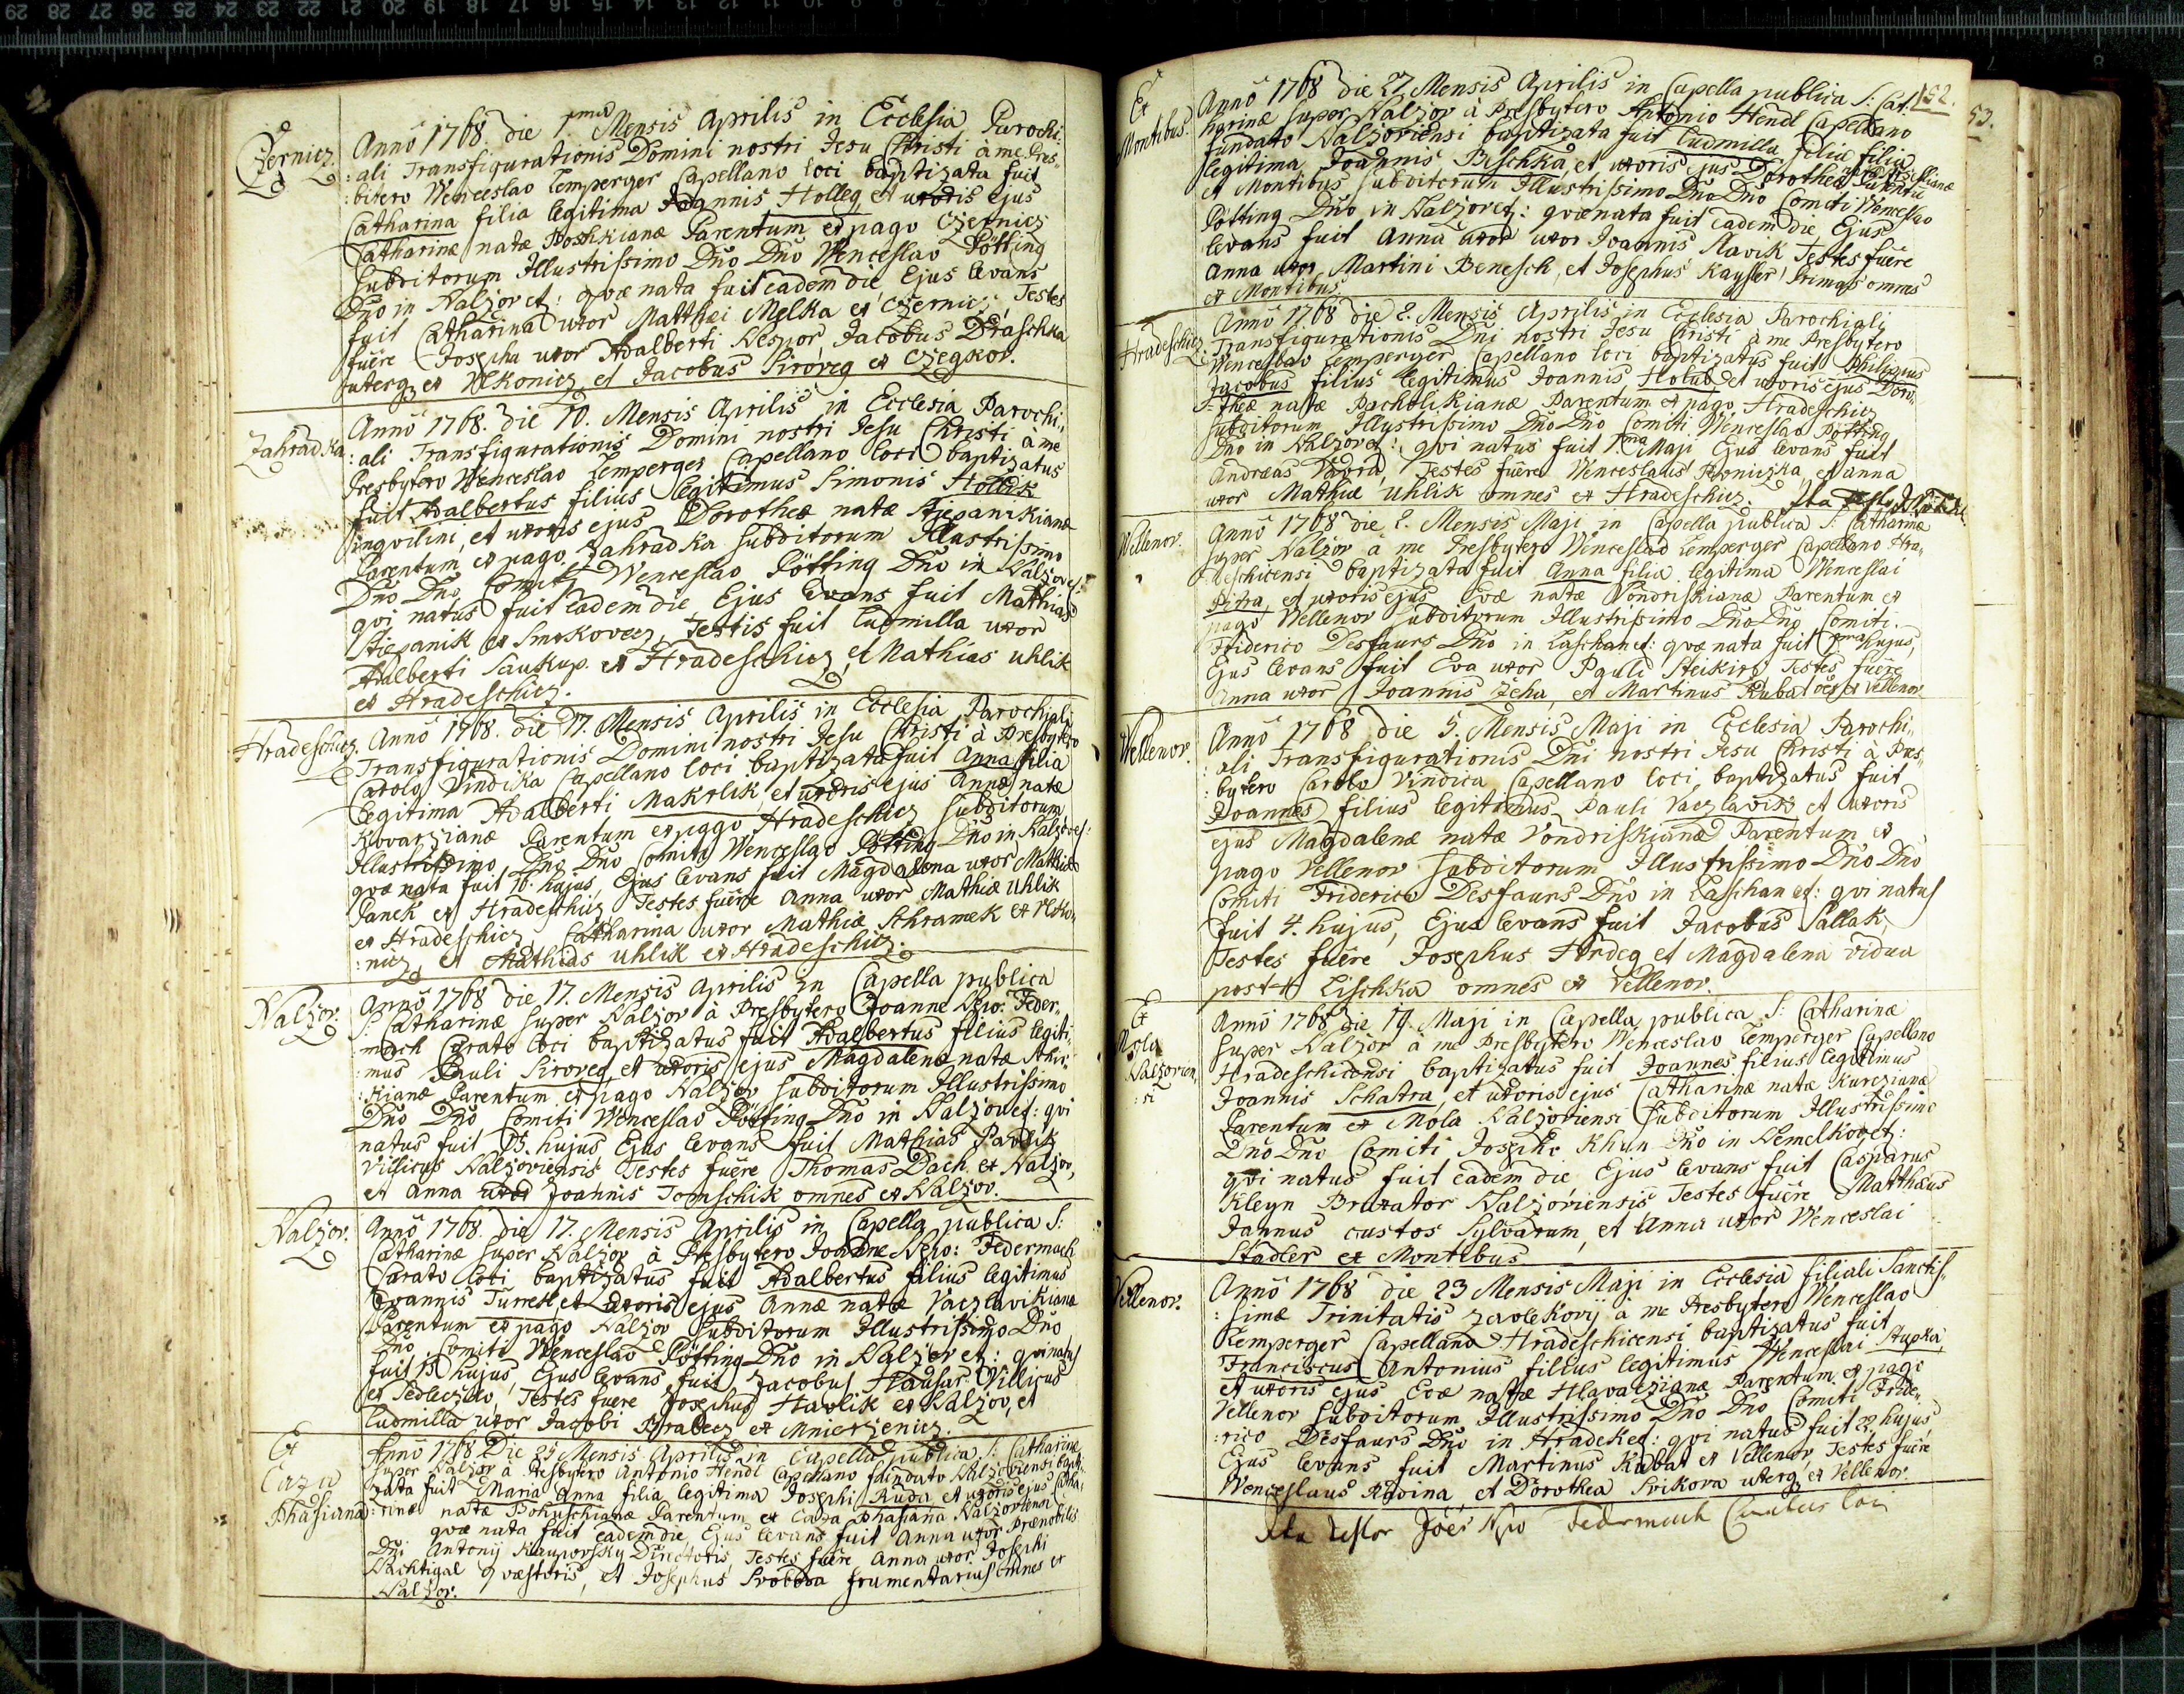 Czernicz.
Anno 1768. die 1ma Mensis Aprilis in Ecclesia Parochi:
:ali Transfigurationis Domini nostri Jesu Christi à me Pres:
:bitero Wenceslao Lemperger Capellano loci baptizata fuit
Catharina filia legitima Joannis Holleg et uxoris ejus
Catharinæ natæ Poshkianæ Parentum ex pago Czernicz
subditorum Illustrissimo Dno Dno Wenceslao Pötting
Dno in Nalzov et: qvæ nata fuit eadem die, Ejus levans
fuit Catharina uxor Matthæi Melka ex Czernicz, Testes
fuêre Josepha uxor Adalberti Nespor, Jacobus Draschka
uterq. ex Wlkonicz, et Jacobus Siroveg ex Czegkov.
Zahradka
Anno 1768. die 10. Mensis Aprilis in Ecclesia Parochi:
:ali Transfigurationis Domini nostri Jesu Christi à me
Presbytero Wenceslao Lemperger Capellano loci baptizatus
fuit Adalbertus filius legitimus Simonis Hollik
inqvilini, et uxoris ejus Dorotheæ natæ Stiepanikianæ
Parentum ex pago Zahradka subditorum Illustrissimo
Dno Dno Comiti Wenceslao Pötting Dno in Nalzov et:
qvi natus fuit eadem die, Ejus levans fuit Mathias
Stiepanik ex Smrkovecz, Testis fuit Ludmilla uxor
Adalberti Saukup. ex Hradeschicz, et Mathias Uhlik
ex Hradeschicz.
Hradeschicz.
Anno 1768. die 17. Mensis Aprilis in Ecclesia Parochiali
Transfigurationis Domini nostri Jesu Christi à Presbytero
Carolo Vindika Capellano loci baptizata fuit Anna filia
legitima Adalberti Makrlik, et uxoris ejus Annæ natæ
Kovarzianæ Parentum ex pago Hradeschicz subditorum
Illustrissimo Dno Dno Comiti Wenceslao Pötting Dno in Nalzov et:
qvæ nata fuit 16. hujus, Ejus levans fuit Magdalena uxor Mathiæ
Janek ex Hradeschicz, Testes fuêre Anna uxor Mathiæ Uhlik
ex Hradeschicz, Catharina uxor Mathiæ Schramek ex Vlko:
:nicz, et Mathias Uhlik ex Hradeschicz.
Nalzov.
Anno 1768 die 17. Mensis Aprilis in Capella publica
S: Catharinæ super Nalzov à Presbytero Joanne Nepo: Feder:
:mach Curato loci baptizatus fuit Adalbertus filius legiti:
:mus Pauli Siroveg, et uxoris ejus Magdalenæ natæ
:kianæ Parentum ex pago Nalzov subditorum Illustrissimo
Dno Dno Comiti Wenceslao Pötting Dno in Nalzov et: qvi
natus fuit 15. hujus, Ejus levans fuit Mathias Pavlik
Villicus Nalzoviensis Testes fuêre Thomas Dach ex Nalzov,
et Anna uxor Joannis Tomschik omnes ex Nalzov.
Nalzov.
Anno 1768. die 17. Mensis Aprilis in Capella publica S:
Catharinæ super Nalzov à Presbytero Joanne Nepo: Federmach
Curato loci baptizatus fuit Adalbertus filius legitimus
Joannis Turrek, et uxoris ejus Annæ natæ Vaczlavikianæ
Parentum ex pago Nalzov subditorum Illustrissimo Dno
Dno Comiti Wenceslao Pötting Dno in Nalzov et: qvi natus
fuit 15 hujus, Ejus levans fuit Jacobus Hausar Villicus
ex Tedleczko, Testes fuere Josephus Havlik ex Nalzov, et
Ludmilla uxor Jacobi Brabecz ex Mnierzenicz.
Ex
Caza
Phasiana
Anno 1768 Die 25 Mensis Aprilis in Capella publica S: Catharinæ
super Nalzov à Presbytero Antonio Hendl Capellano fundato Nalzoviensi bapti:
zata fuit Maria Anna filia legitima Josephi Ruda, et uxoris ejus Catha:
:rinæ natæ Bohuschianæ Parentum ex Caza Phasiana Nalzoviensi
qvæ nata fuit eadem die, Ejus levans fuit Anna uxor Prænobilis
Dni Antonij Kaupovsky Directoris, Testes fuêre Anna uxor Josephi
Nachtigal qvæstoris, et Josephus Svoboda frumentarius omnes ex
Nalzov.
152.
53.
Ex
Montibus.
Anno 1768 die 27 Mensis Aprilis in Capella publica S: Cat:
harinæ super Nalzov à Presbytero Antonio Hendl Capellano
fundato Nalzoviensi baptizata fuit Ludmilla filia filia
legitima Joannis Peschka, et uxoris ejus Dorotheæ
Parentum
ex Montibus subditorum Illustrissimo Dno Dno Comiti Wenceslao
Pötting Dno in Nalzov et: qvæ nata fuit eadem die, Ejus
levans fuit Anna uxor uxor Joannis Slavik Testes fuêre
Anna uxor Martini Benesch, et Josephus Kayser Primas omnes
ex Montibus.
Hradeschicz
Anno 1768 die 2. Mensis Aprilis in Ecclesia Parochiali
Transfigurationis Dni nostri Jesu Christi à me Presbytero
Wenceslao Lemperger Capellano loci baptizatus fuit Philippus
Jacobus filius legitimus Joannis Holub, et uxoris ejus Doro:
:theæ natæ Pacholikianæ Parentum ex pago Hradeschicz
subditorum Illustrissimo Dno Dno Comiti Wenceslao Pötting
Dno in Nalzov et: qvi natus fuit 1ma Maji Ejus levans fuit
Andræas Vavra, Testes fuêre Wenceslaus, et Anna
uxor Mathiæ Uhlik omnes ex Hradeschicz. Ita
Vellenov.
Anno 1768 die 2. Mensis Maji in Capella publica S: Catharinæ
super Nalzov à me Presbytero Wenceslao Lemperger Capellano Hra:
deschicensi baptizata fuit Anna filia legitima Wenceslai
Pitra, et uxoris ejus Evæ natæ Vondriskianæ Parentum ex
pago Vellenov subditorum Illustrissimo Dno Dno Comiti
Friderico Desfaurs Dno in Laschan et: qvæ nata fuit 1ma hujus,
Ejus levans fuit Eva uxor Pauli Testes fuêre
Anna uxor Joannis Zeha, et Martinus Kubat oes ex Vellenov
Vellenov.
Anno 1768 die 5. Mensis Maji in Ecclesia Parochi:
:ali Transfigurationis Dni nostri Jesu Christi à Pres:
:bytero Carolo Vindica Capellano loci, baptizatus fuit
Joannes filius legitimus Pauli Vaczlavik et uxoris
ejus Magdalenæ natæ Vondriskianæ Parentum ex
pago Vellenov subditorum Illustrissimo Dno Dno
Comiti Friderico Desfaurs Dno in Laschan et: qvi natus
fuit 4. hujus, Ejus levans fuit Jacobus Sallak,
Testes fuêre Josephus Hrdeg et Magdalena vidua
post + Lischka omnes ex Vellenov.
Ex
Mola
Nalzovien:
:si
Anno 1768 die 19. Maji in Capella publica S: Catharinæ
super Nalzov à me Presbytero Wenceslao Lemperger Capellano
Hradeschicensi baptizatus fuit Joannes filius legitimus
Joannis Schatra, et uxoris ejus Catharinæ natæ Kurczianæ
Parentum ex Mola Nalzoviensi subditorum Illustrissimo
Dno Dno Comiti Josepho Khun Dno in Nemelkov et:
qvi natus fuit eadem die Ejus levans fuit Casparus
Kleyn Braxator Nalzoviensis Testes fuêre Matthæus
Jannus custos Sylvarum, et Anna uxor Wenceslai
Stadler ex Montibus
Vellenov.
Anno 1768 die 23 Mensis Maji in Ecclesia filiali Sanctis:
:simæ Trinitatis Zavlekovij à me Presbytero Wenceslao
Lemperger Capellano Hradeschicensi baptizatus fuit
Franciscus Antonius filius legitimus Wenceslai Stupka,
et uxoris ejus Evæ natæ Hlavaczianæ Parentum ex pago
Vellenov subditorum Illustrissimo Dno Dno Comiti Fride:
:rico Desfaurs Dno in Hradek et: qvi natus fuit 22 hujus
Ejus levans fuit Martinus Kubat ex Vellenov, Testes fuêre
Wenceslaus Rovina, et Dorothea Svikova uterq. ex Vellenov.
Ita testor Joês Npo Federmach Curatus loci